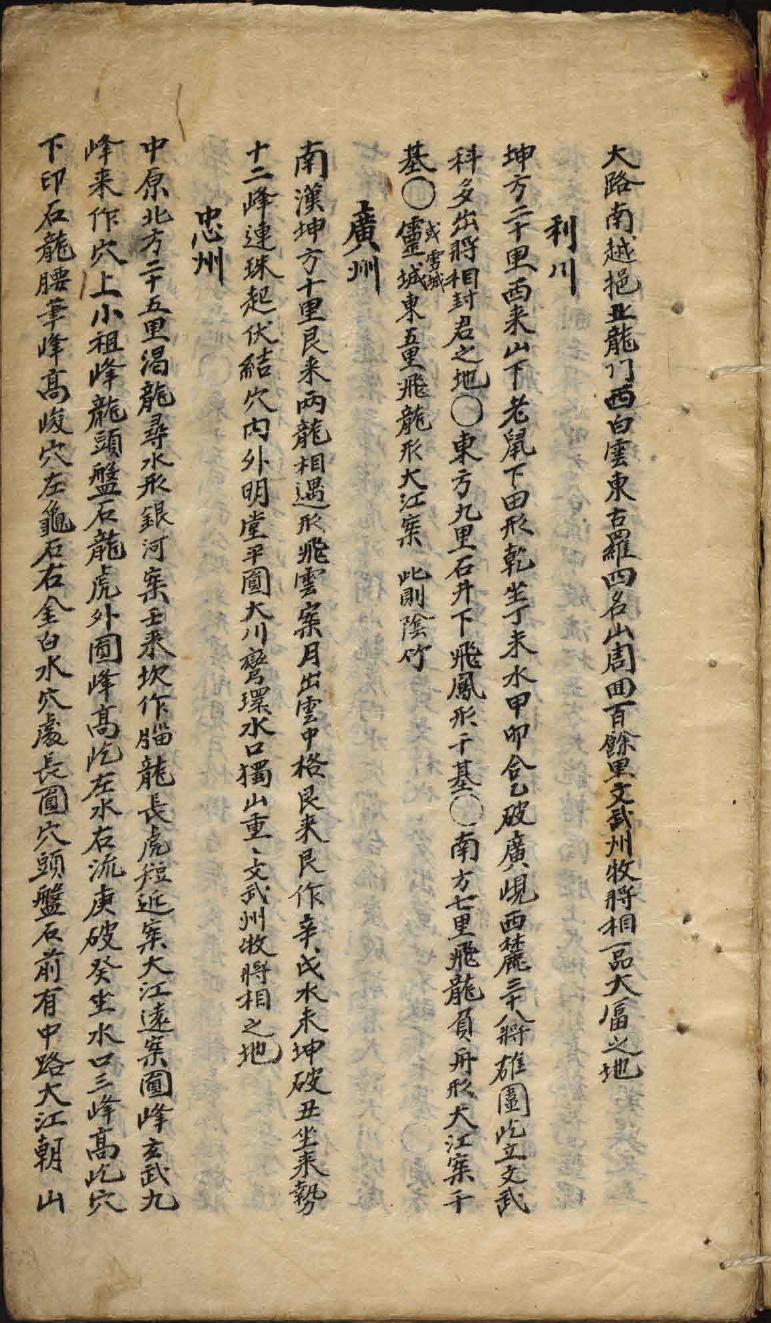 大路南越挹北龍门西白雲東古羅四名山周回百餘里文武州牧將相一品大富之地
利川
坤方二十里西来山下老鼠下田形乾坐丁未水甲卯合乙破廣峴西麓二十八將雄圖屹立文武
科多出將相封君之地〇東方九里石井下飛鳳形千基〇南方七里飛龍負舟形大江案千
基〇儘城或雪城東五里飛龍形大江案 此則陰竹
廣州
南漢坤方十里艮来両龍相遇形飛雲案月出雲中格艮来艮作辛戌水未坤破丑坐来勢
十二峰連珠起伏結穴內外明堂平圓大川彎環水口獨山重〻文武州牧將相之地
忠州
中原北方二十五里渴龍尋水形銀河案壬来坎作腦龍長虎短近案大江遠案圓峰玄武九
峰来作穴上小祖峰龍頭盤石龍虎外圓峰高屹左水右流庚破癸坐水口三峰高屹穴
下印石龍腰筆峰高峻穴左龜石右金白水穴處長圓穴頭盤石前有中路大江朝山